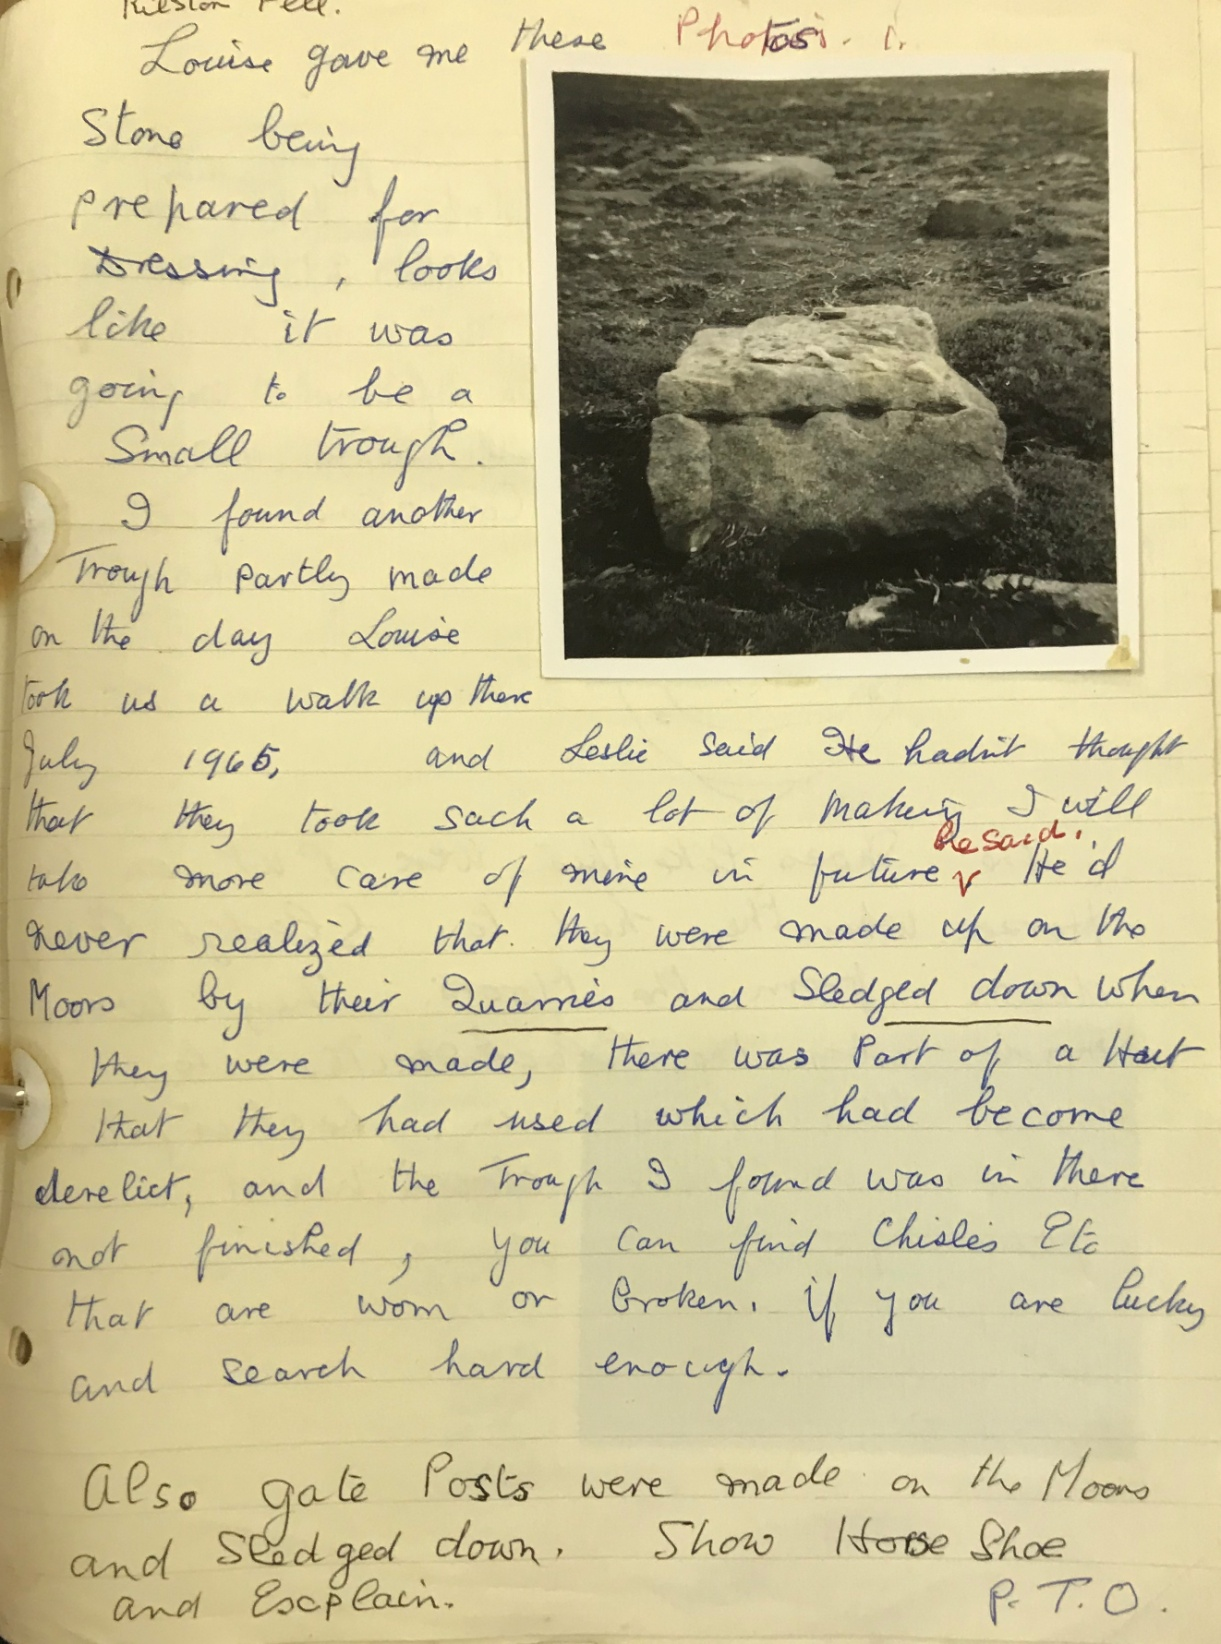 Rilston Fell.
Louise gave me these Photos. 1.
Stone being
prepared for
Dressing, looks
like it was
going to be a
Small trough.
I found another
Trough partly made
on the day Louise
took us a walk up there
July 1965, and Leslie said He hadn't thought
that they took such a lot of making I will
take more care of mine in future he said. He'd
never realized that they were made up on the
Moors by their Quarries and Sledged down when
they were made, there was Part of a Hut
that they had used which had become
derelict, and the Trough I found was in there
not finished, you can find Chisles Etc
that are worn or broken. if you are lucky
and search hard enough.
Also gate Posts were made on the Moors
and Sledged down. Show Horse Shoe
and Escplain.
P.T.O.